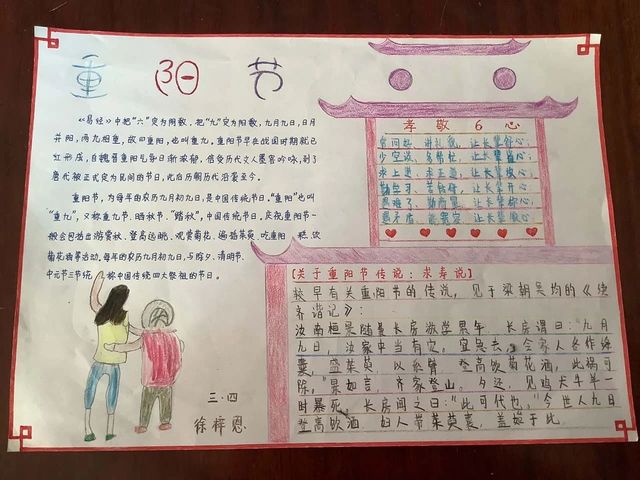 重阳节
《易经》中把"六"定为阴数，把"九"定为阳数，九月九日，日月
并阳，两九相重，故曰重阳，也叫重九。重阳节早在战国时期就已
经形成，自魏晋重阳气氛日渐浓郁，倍受历代文人墨客吟咏，到了
唐代被正式定为民间的节日，此后历朝历代沿袭至今。
重阳节，为每年的农历九月初九日，是中国传统节日。"重阳"也叫
"重九"，又称重九节、晒秋节、"踏秋"，中国传统节日。庆祝重阳节一
般会包括出游赏秋、登高远眺、观赏菊花、遍插茱萸、吃重阳糕、饮
菊花酒等活动。每年的农历九月初九日，与除夕、清明节、
中元节三节统称中国传统四大祭祖的节日。
三.四
徐梓恩
孝敬6心
常问好，讲礼貌，让长辈舒心；
少空谈，多帮忙，让长辈
求上进，求正道，让长辈放心；
勤学习，苦钻研，让长辈开心
让长辈
能宽容，让长辈
[关于重阳节传说：求寿说]
较早有关重阳节的传说，见于梁朝吴均的《续
齐谐记》：
汝南桓景随费长房游学累年，长房谓曰："九月
九日，汝家中当有灾。宜急去，令家人各作绛
囊，盛茱萸，以系臂，登高饮菊花酒，此祸可
除。"景如言，齐家登山。夕还，见鸡犬牛羊一
时暴死。长房闻之曰："此可代也。"今世人九日
登高饮酒，妇人带茱萸囊，盖始于此。